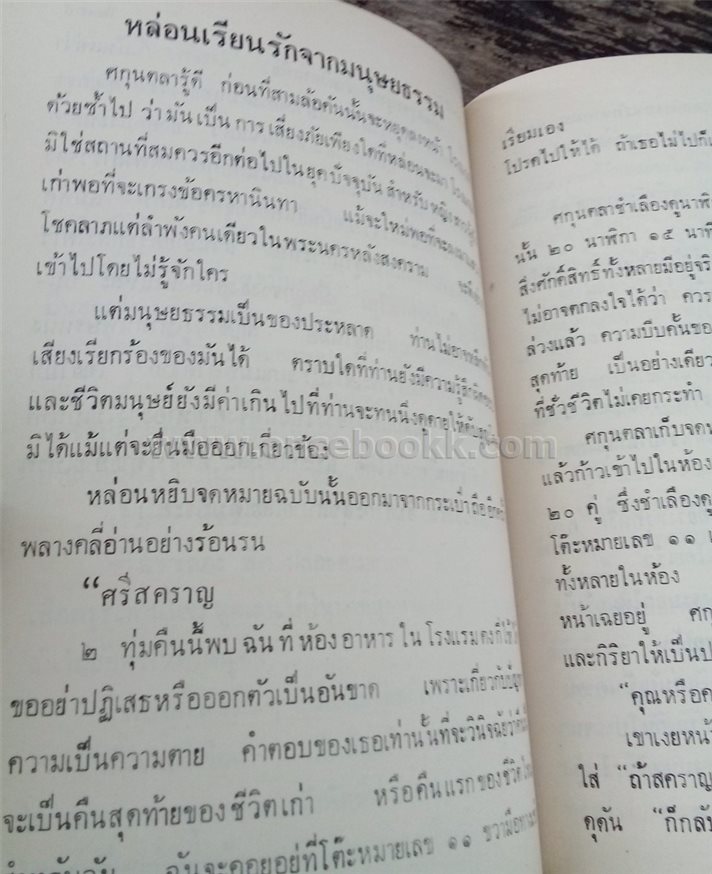 หล่อนเรียนรักจากมนุษยธรรม
ศกุนตลารู้ดี ก่อนที่สามล้อคันนั้นจะหยุดลงหน้า
ด้วยซ้ำไป ว่ามันเป็นการเสี่ยงภัยเพียงใดที่หล่อนจะมา
มิใช่สถานที่สมควรอีกต่อไปในยุคปัจจุบันสำหรับหญิง
เก่าพอที่จะเกรงข้อครหานินทา แม้จะใหม่พอที่จะ
โชคลาภแต่ลำพังคนเดียวในพระนครหลังสงคราม
เข้าไปโดยไม่รู้จักใคร
แต่มนุษยธรรมเป็นของประหลาด ท่านไม่อาจ
เสียงเรียกร้องของมันได้ ตราบใดที่ท่านยังมีความรู้สึก
และชีวิตมนุษย์ยังมีค่าเกินไปที่ท่านจะทนนิ่งดูดายให้
มิได้แม้แต่จะยื่นมือออกเกี่ยวข้อง
หล่อนหยิบจดหมายฉบับนั้นออกมาจากกระเป๋าถือ
พลางคลี่อ่านอย่างร้อนรน
“ศรีสคราญ
๒ ทุ่มคืนนี้พบฉันที่ห้องอาหารในโรงแรม
ขออย่าปฏิเสธหรือออกตัวเป็นอันขาด เพราะเกี่ยวกับ
ความเป็นความตาย คำตอบของเธอเท่านั้นที่จะวินิจฉัยว่า
จะเป็นคืนสุดท้ายของชีวิตเก่า หรือคืนแรกของชีวิต
ฉันจะคอยอยู่ที่โต๊ะหมายเลข ๑๑
เรียมเอง
โปรดไปให้ได้ ถ้าเธอไม่ไปก็
ศกุนตลาชำเลืองดูนาฬิ
นั้น ๒๐ นาฬิกา ๑๕ นาที
สิ่งศักดิ์สิทธิ์ทั้งหลายมีอยู่จริ
ไม่อาจตกลงใจได้ว่า ควร
ล่วงแล้ว ความบีบคั้นของ
สุดท้าย เป็นอย่างเดียว
ที่ชั่วชีวิตไม่เคยกระทำ
ศกุนตลาเก็บจดห
แล้วก้าวเข้าไปในห้อง
๒๐ คู่ ซึ่งชำเลืองดู
โต๊ะหมายเลข ๑๑
ทั้งหลายในห้อง
หน้าเฉยอยู่ ศกุ
และกิริยาให้เป็นป
“คุณหรือค
เขาเงยหน้า
ใส่ “ถ้าสคราญ
ดุดัน “ก็กลับ